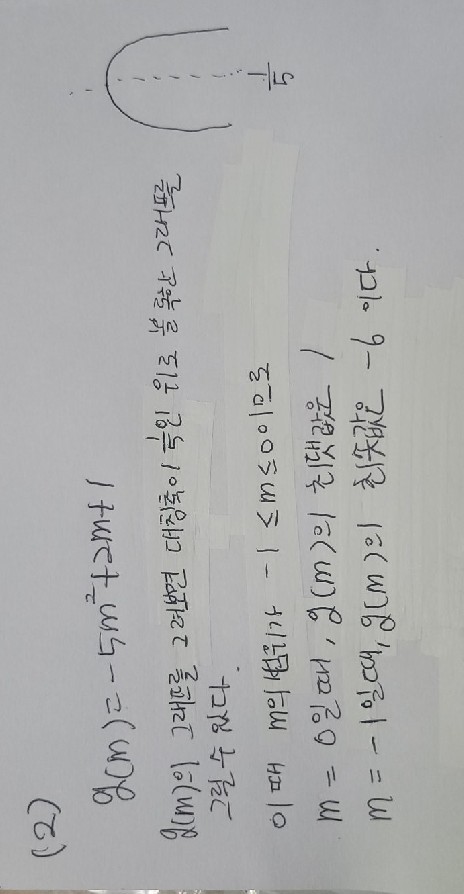 (2)
g(m) = -5m²+2m+1
g(m)의 그래프를 그려보면 대칭축이 5분의1인 위로 볼록한 그래프를
그릴 수 있다.
이 때 m의 범위가 -1 ≤ m ≤ 0 이므로
m = 0일 때, g(m)의 최댓값은 1
m = -1일때, g(m)의 최솟값은 -6 이다.
1/5